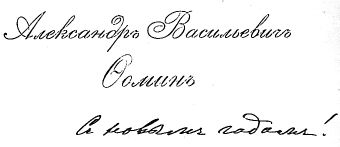 Александръ Васильевичъ
Ѳоминъ
С новымъ годомъ!